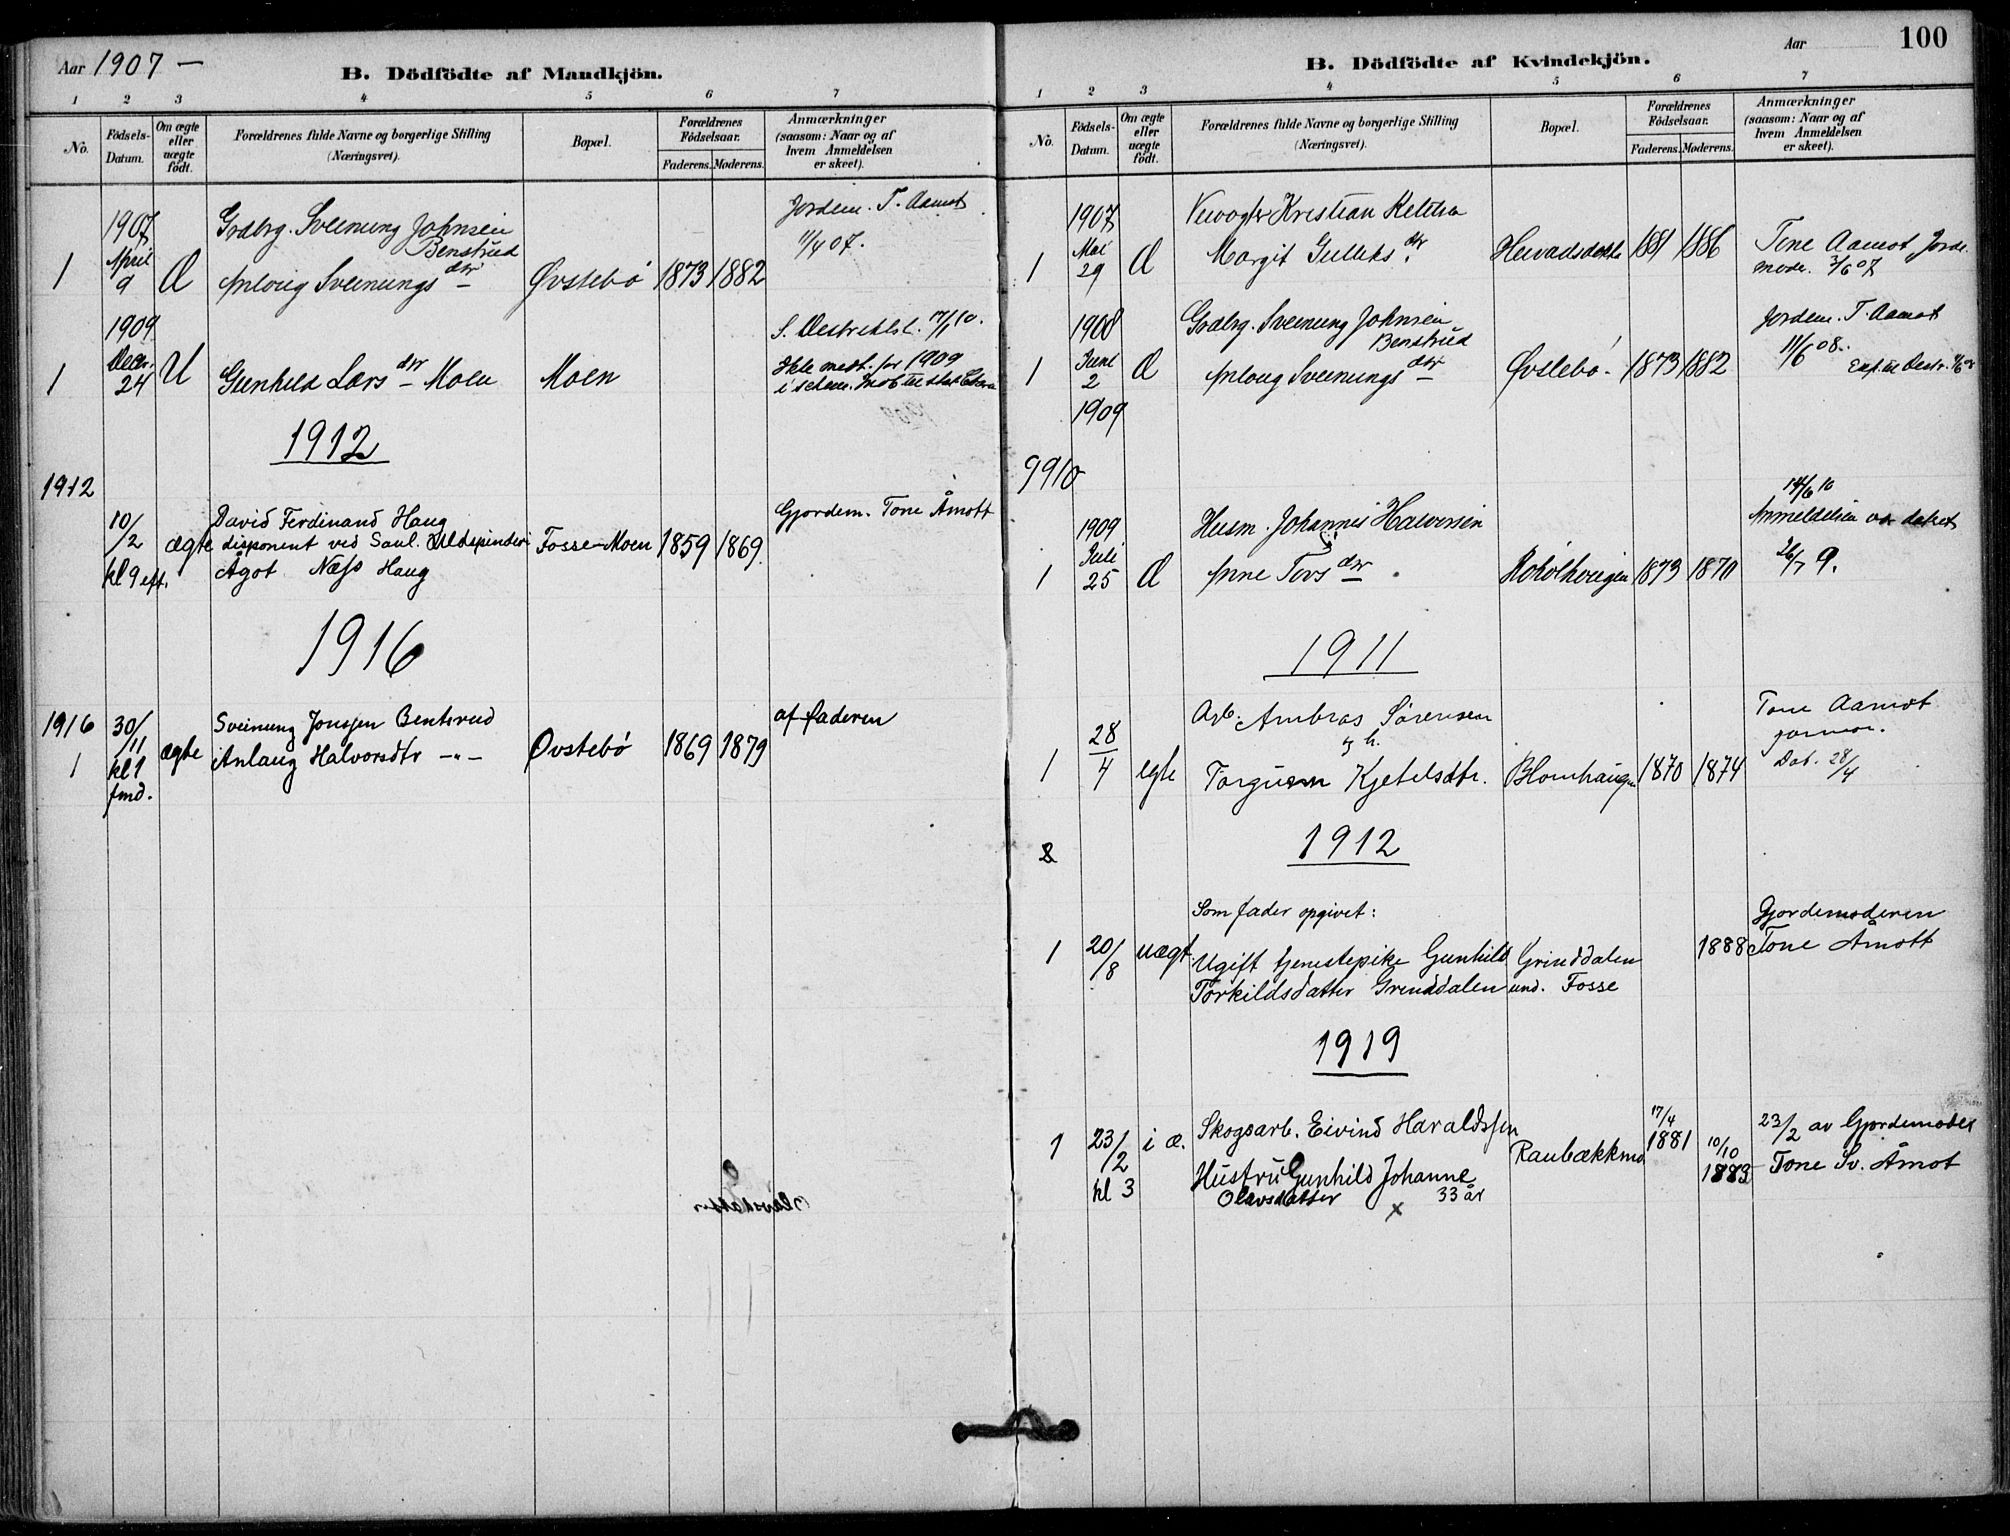 Aar 1907 —
B. Dödfödte af Mandkjön.
1 2 3 4 5 6 7
No.
Födsels-Datum.
Om ægte eller uægte födt.
Forældrenes fulde Navne og borgerlige Stilling
(Næringsvei).
Bopæl.
Forældrenes Födselsaar.
Faderens. Moderens.
Anmærkninger
(saasom: Naar og af
hvem Anmeldelsen
er skeet).
1907
Grdbrg. Sveinung Johnsen
Benstrud
Jordem. T. Aamot
11/4 07.
1 April 9 Æ Anloug Sveinungsdtr — Øvstebö 1873 1882
1909
1 Decbr. 24 U Gunhild Larsdtr Moen Moen
Ikke medt. for 1909
1912
1912
10/2
kl 9 eft.
ægte
David Ferdinand Haug
disponent ved Saul. Uldspinderi
Ågot Næss Haug
Fosse-Moen 1859 1869.
Gjordem. Tone Åmott
1916
1916
1
30/11
kl 1
fmd.
ægte
Sveinung Jonssen Bentsrud
Anlaug Halvorsdtr -"-
Øvstebö 1869 1879
af faderen
Aar 100
B. Dödfödte af Kvindekjön.
1 2 3 4 5 6 7
No.
Födsels-Datum.
Om ægte eller uægte födt.
Forældrenes fulde Navne og borgerlige Stilling
(Næringsvei).
Bopæl.
Forældrenes Födselsaar.
Faderens. Moderens.
Anmærkninger
(saasom: Naar og af
hvem Anmeldelsen
er skeet).
1907
Kristian
1 Mai 29 Æ Margit Gulliksdtr. 1881 1886
Tone Aamot Jorde
moder. 3/6 07
1908
Grdbrg. Sveinung Johnsen
Benstrud
Jordem. T. Aamot
11/6 08.
1 Juni 2 Æ Anloug Sveinungsdtr — Øvstebö. 1873 1882
1909
9910
14/6 10
Anmeldelsen var datert
26/7 9.
1909
Husm. Johannes Halvorsen
1 Juli 25 Æ Anne Torsdtr 1873 1870
1911
Arb. Ambros Sörensen
og h.
1 28/4 egte Torgunn Kjetelsdtr. Blomhaugen 1870 1874
Tone Aamot
jormor.
Dat. 28/4
2
1912
Som fader opgivet:
1 20/8 uægt. Ugift tjenestepike Gunhild
Torkildsdatter Grinddalen
Grinddalen
und. Fosse
1888
Gjordemoderen
Tone Åmott
1919
1 23/2 kl 3 i æ.
Skogsarb. Eivind Haraldssen
Hustru Gunhild Johanne
Olavsdatter 33 år
x
Raubækkmo
17/4
1881
10/10
1883
23/2 av Gjordemoder
Tone Sv. Åmot